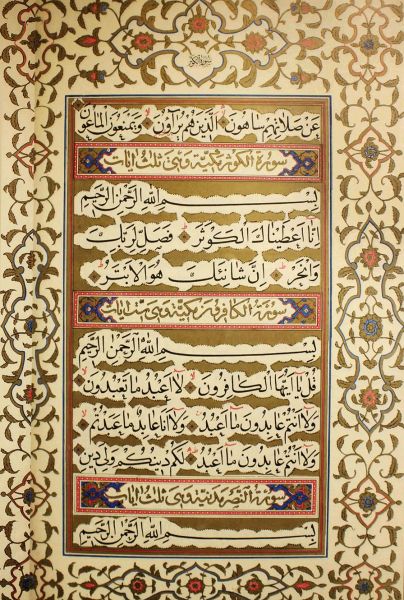 سورة الكوثر
عَنْ صَلَاتِهِمْ سَاهُونَ الَّذِينَ هُمْ يُرَآؤُنَ وَيَمْنَعُونَ الْمَاعُونَ
سورة الكوثر مكية وهي ثلث ايات
بِسْمِ اللهِ الرَّحْمٰنِ الرَّحِيمِ
اِنَّا اَعْطَيْنَاكَ الْكَوْثَرَ فَصَلِّ لِرَبِّكَ
وَانْحَرْ اِنَّ شَانِئَكَ هُوَ الْاَبْتَرُ
سورة الكافرون مكية وهي ست ايات
بِسْمِ اللهِ الرَّحْمٰنِ الرَّحِيمِ
قُلْ يَا اَيُّهَا الْكَافِرُونَ لَا اَعْبُدُ مَا تَعْبُدُونَ
وَلَا اَنْتُمْ عَابِدُونَ مَا اَعْبُدُ وَلَا اَنَا عَابِدٌ مَا عَبَدْتُمْ
وَلَا اَنْتُمْ عَابِدُونَ مَا اَعْبُدُ لَكُمْ دِينُكُمْ وَلِيَ دِينِ
سورة النصر مدنية وهي ثلث ايات
بِسْمِ اللهِ الرَّحْمٰنِ الرَّحِيمِ